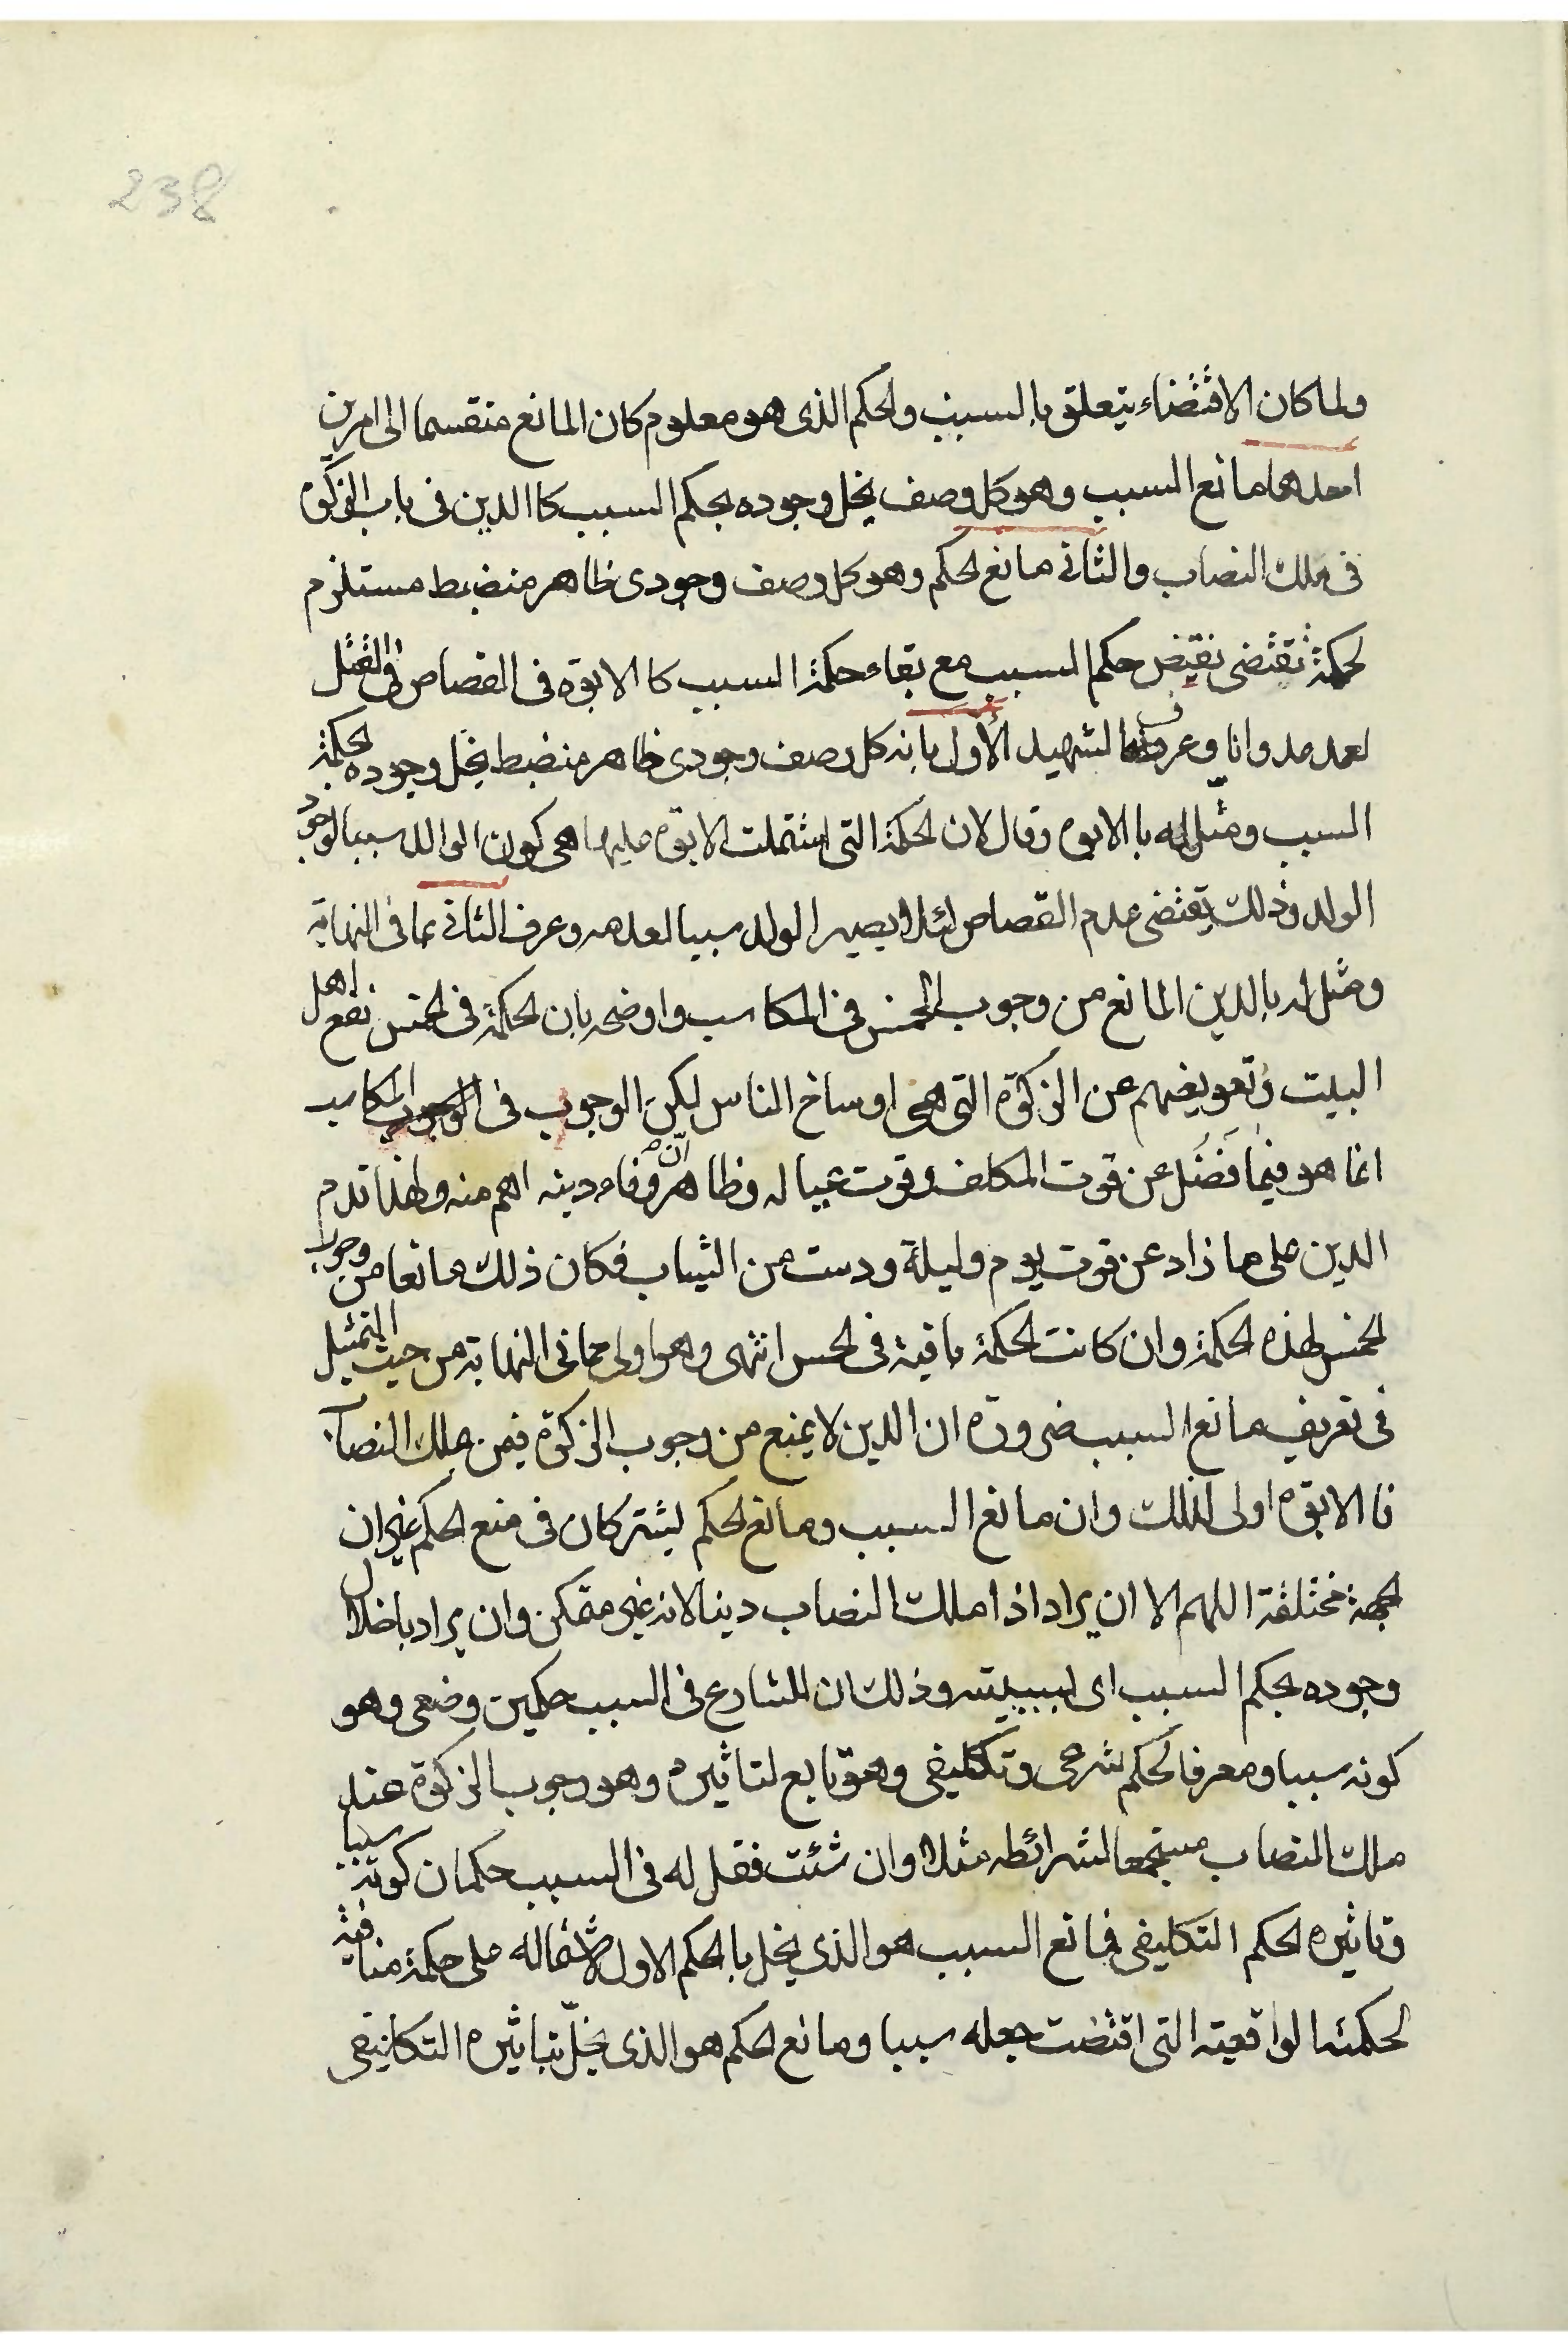 238
ولما كان الاقتضاء يتعلق بالسبب والحكم الذى هو معلوم كان المانع منقسما الى امرين
احدهما مانع السبب وهو كل وصف يخل وجوده بحكم السبب كا الدين فى باب الزكوة
فى ملك النصاب والثانى مانع الحكم وهو كل وصف وجودى ظاهر منضبط مستلزم
لحكمة تقتضى نقيض حكم السبب مع بقاء حكمة السبب كا الابوة فى القصاص فى القتل
لعمد عدوانا وعرف الشهيد الأول بانه كل وصف وجودى ظاهر منضبط يخل وجوده لحكمة
السبب ومثل له با الابوه وقال لان الحكمة التى اشتملت الابوة عليها هى كون الوالد سببا لوجود
الولد وذلك يقتضى عدم القصاص لئلا يصير الولد سببا لعدمه وعرف الثانى بما فى النهاية
ومثل له بالدين المانع من وجوب الخمس فى المكاسب واوضحه بان الحكمة فى الخمس نفع اهل
البيت وتعويضهم عن الزكوة التى هى اوساخ الناس لكن الوجوب فى المكاسب
انما هو فيما فضل عن قوت المكلف وقوت عياله وظاهر ان وفاء دينه اهم منه ولهذا قدم
الدين على ما زاد عن قوت يوم وليلة ودست من الثياب فكان ذلك مانعا من وجوب
الخمس لهذه الحكمة وان كانت الحكمة باقية فى الخمس انتهى وهو اولى مما فى النهاية من حيث التمثيل
فى تعريف مانع السبب ضرورة ان الدين لا يمنع من وجوب الزكوة فيمن ملك النصاب
فا الابوة اولى لذلك وان مانع السبب ومانع الحكم يشتركان فى منع الحكم غير ان
الجهة مختلفة اللهم الا ان يراد اذا ملك النصاب دينا لانه غير متمكن وان يراد باخلال
وجوده بحكم السبب اى لسببيته وذلك ان للشارع فى السبب حكمين وضعى وهو
كونه سببا ومعرفا لحكم شرعى وتكليفى وهو تابع لتاثيره وهو وجوب الزكوة عند
ملك النصاب مستجمعا لشرائطه مثلا وان شئت فقل له فى السبب حكمان كونه سببا
وتاثيره الحكم التكليفى فمانع السبب هو الذى يخل با الحكم الاول لاشتماله على حكمة منافية
لحكمته الواقعيه التى اقتضت جعله سببا ومانع الحكم هو الذى يخلّ بتاثيره التكليفى